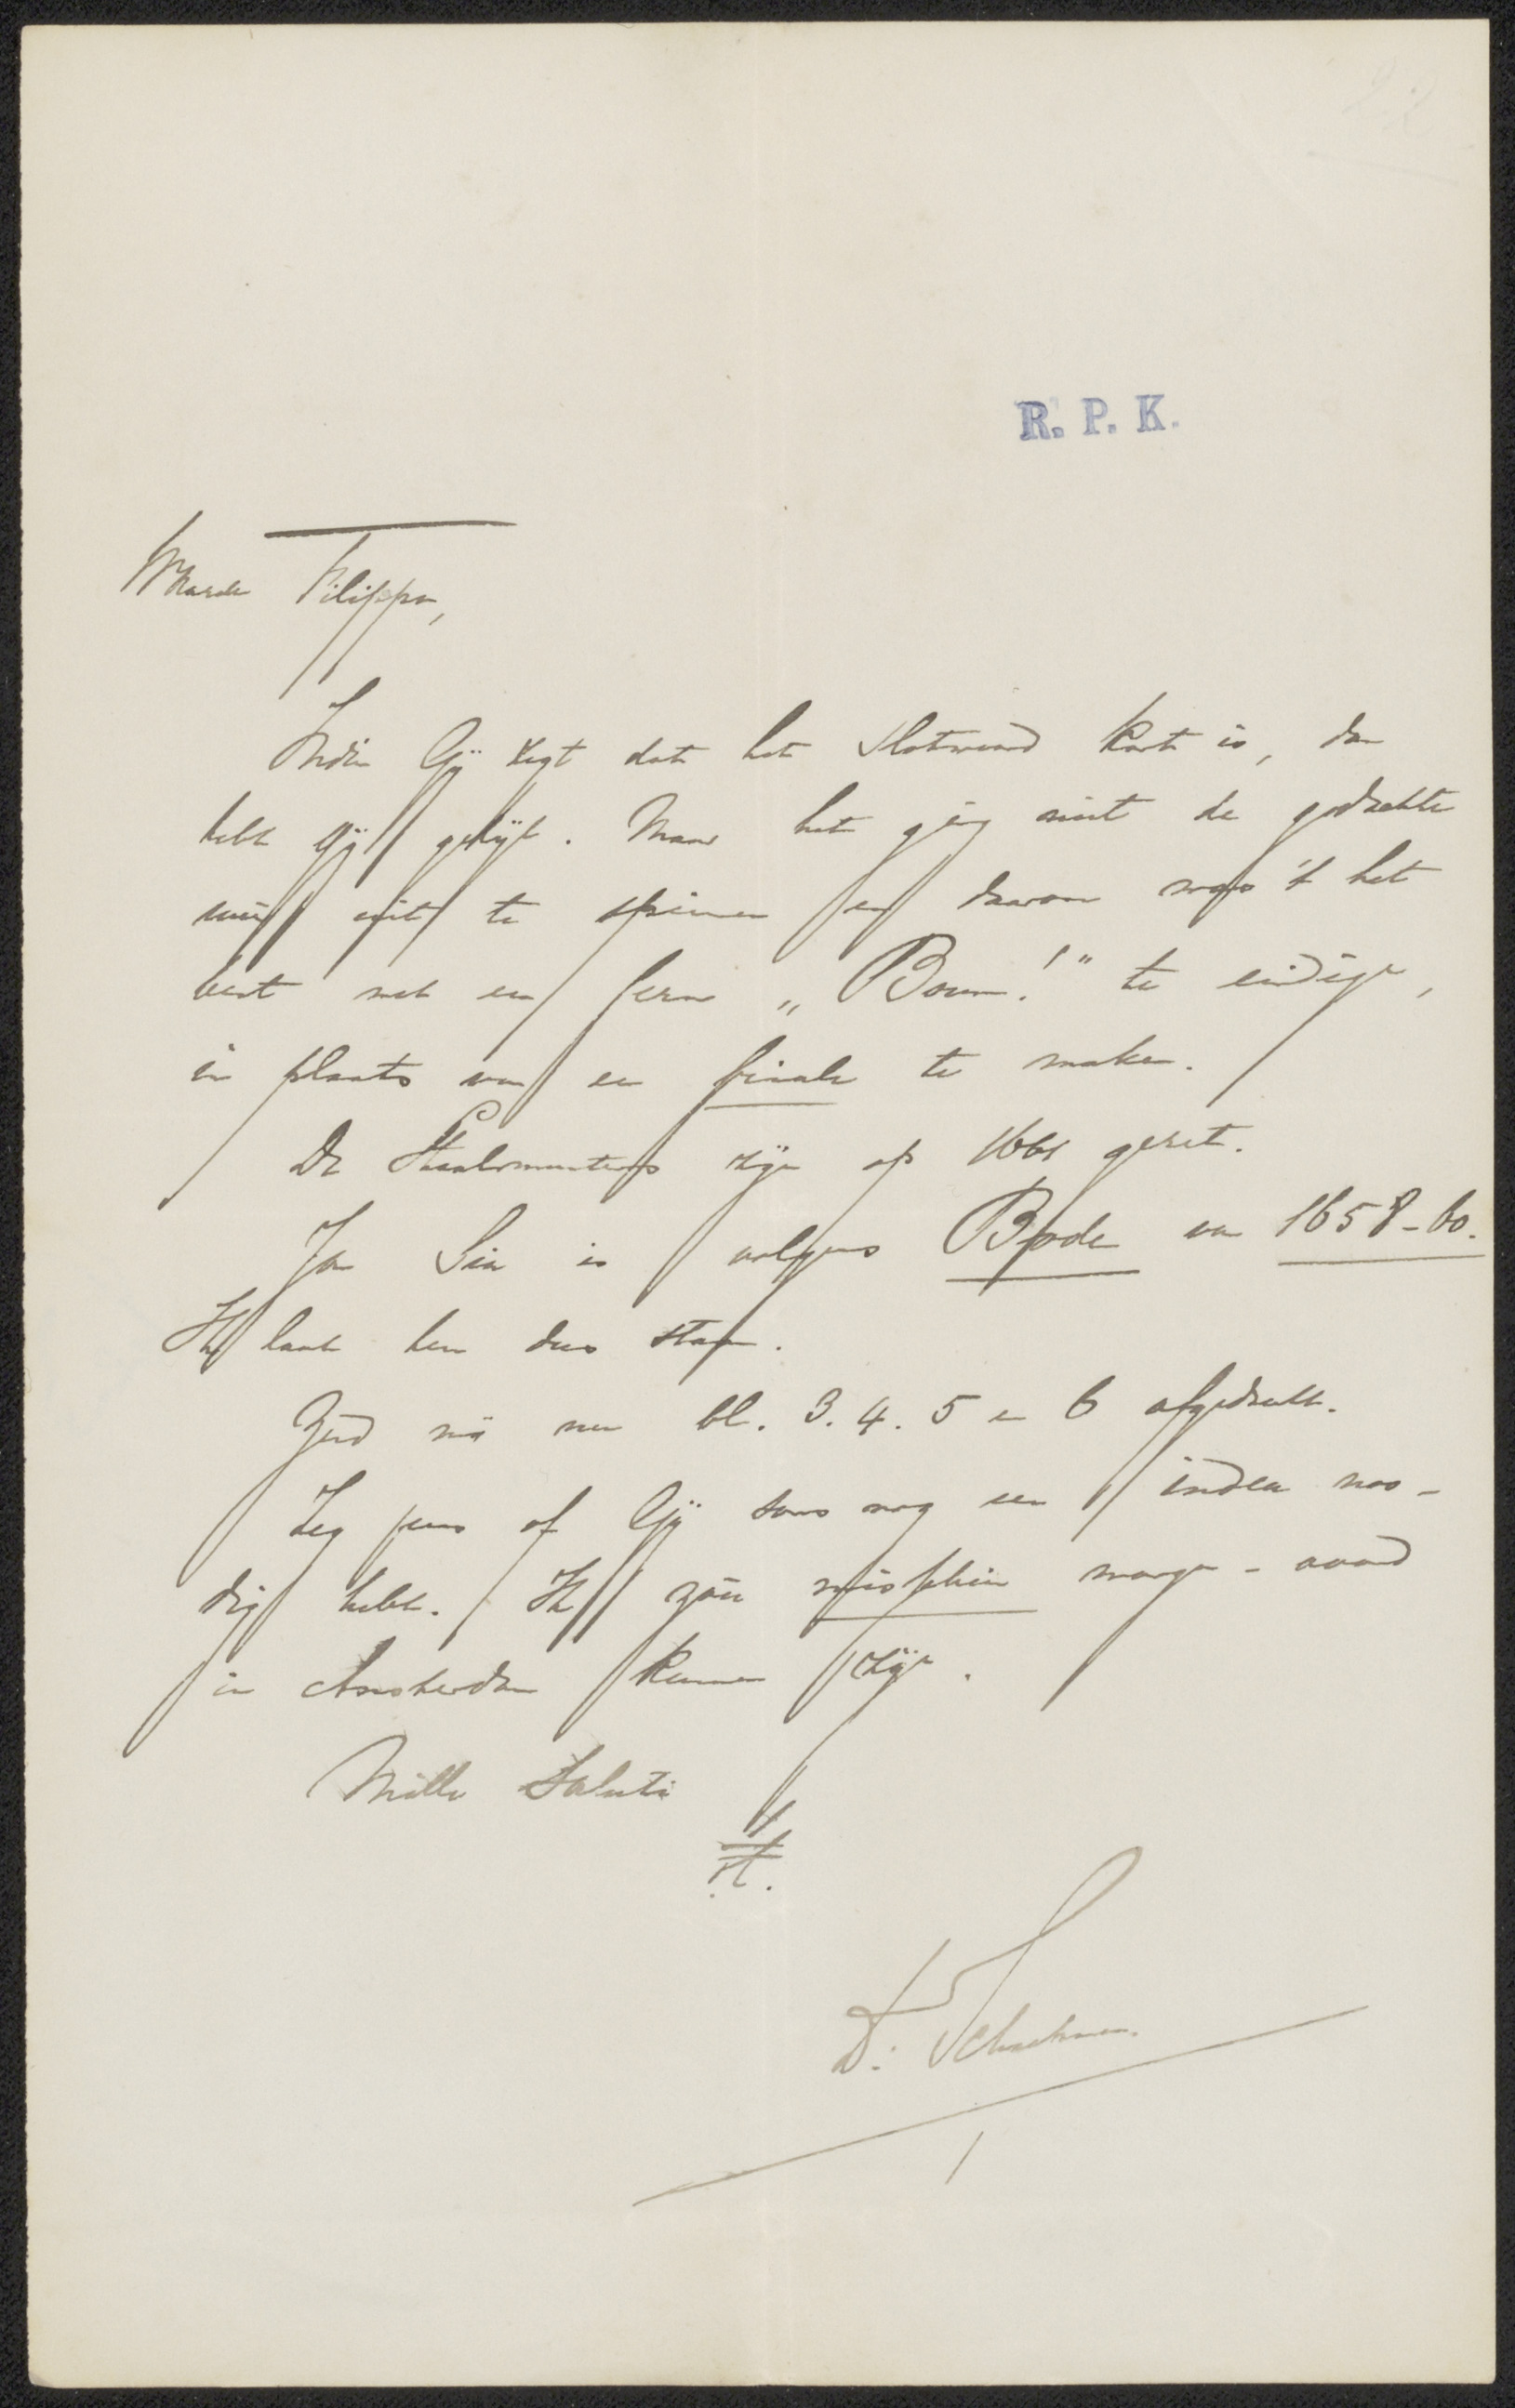 22
R. P. K.
Waarde Filippo,
Indien Gij zegt dat het slotwoord kort is, dan
hebt gij gelijk. Maar het ging niet de gedachte
uit te spinnen en daarom was 't het
best met een ferm „Boum!" te eindigen,
in plaats van een finale te maken.
De Staalmeesters zijn op 1661 gezet.
Jan Six is volgens Bode van 1658-60.
Ik laat hen dus staan.
Zend mij nu bl. 3. 4. 5 en 6 afgedrukt.
Zeg eens of Gij soms nog een index noo-
dig hebt. Ik zou misschien morgen-avond
in Amsterdam kunnen zijn.
Mille Saluti
tt.